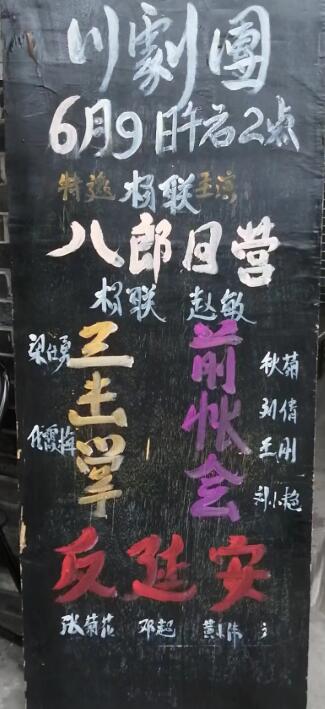 川劇團
6月9日午后2点
特邀 杨联 主演
八郎回营
杨联 赵敏
梁 勇 三击掌
前帐会
秋菊
刘倩
王刚
反延安
张菊花 邓超 黄 伟